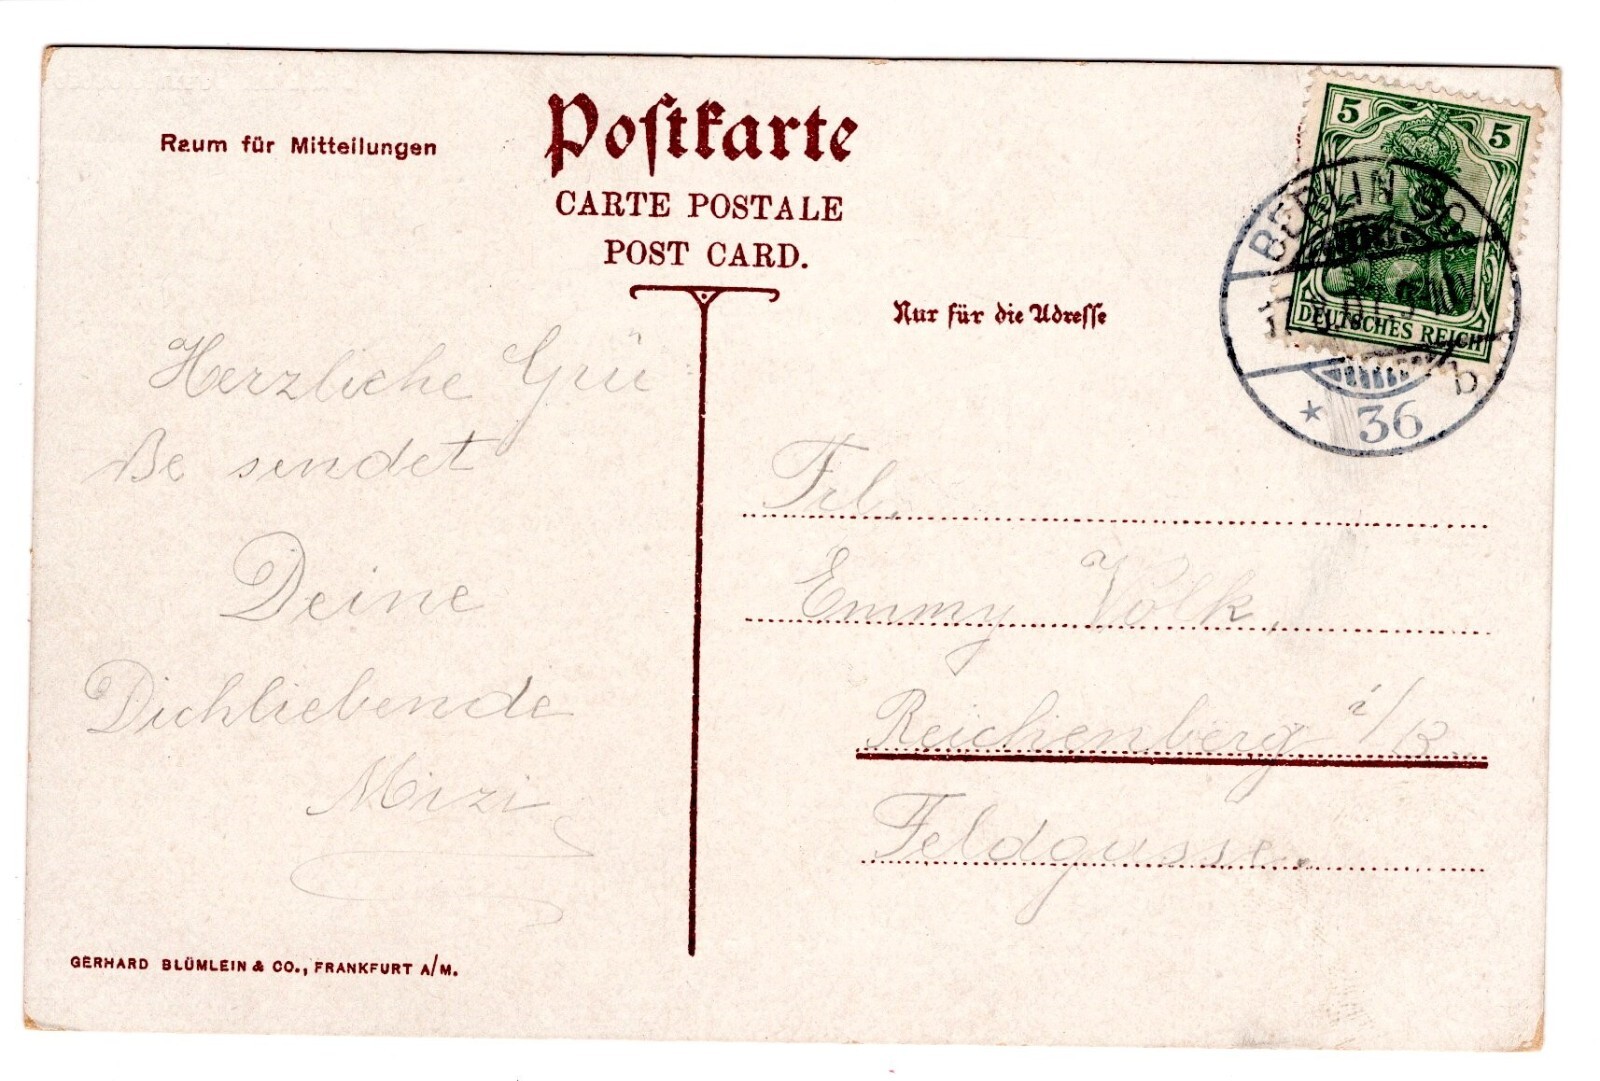 Raum für Mitteilungen
Postkarte
CARTE POSTALE
POST CARD.
Nur für die Adresse
5 5
DEUTSCHES REICH
BERLIN
b
* 36
Herzliche Grü
ße sendet
Deine
Dichliebende
Mizi
Frl.
Emmy Volk,
Reichenberg i/B.
Feldgasse.
GERHARD BLÜMLEIN & CO., FRANKFURT A/M.